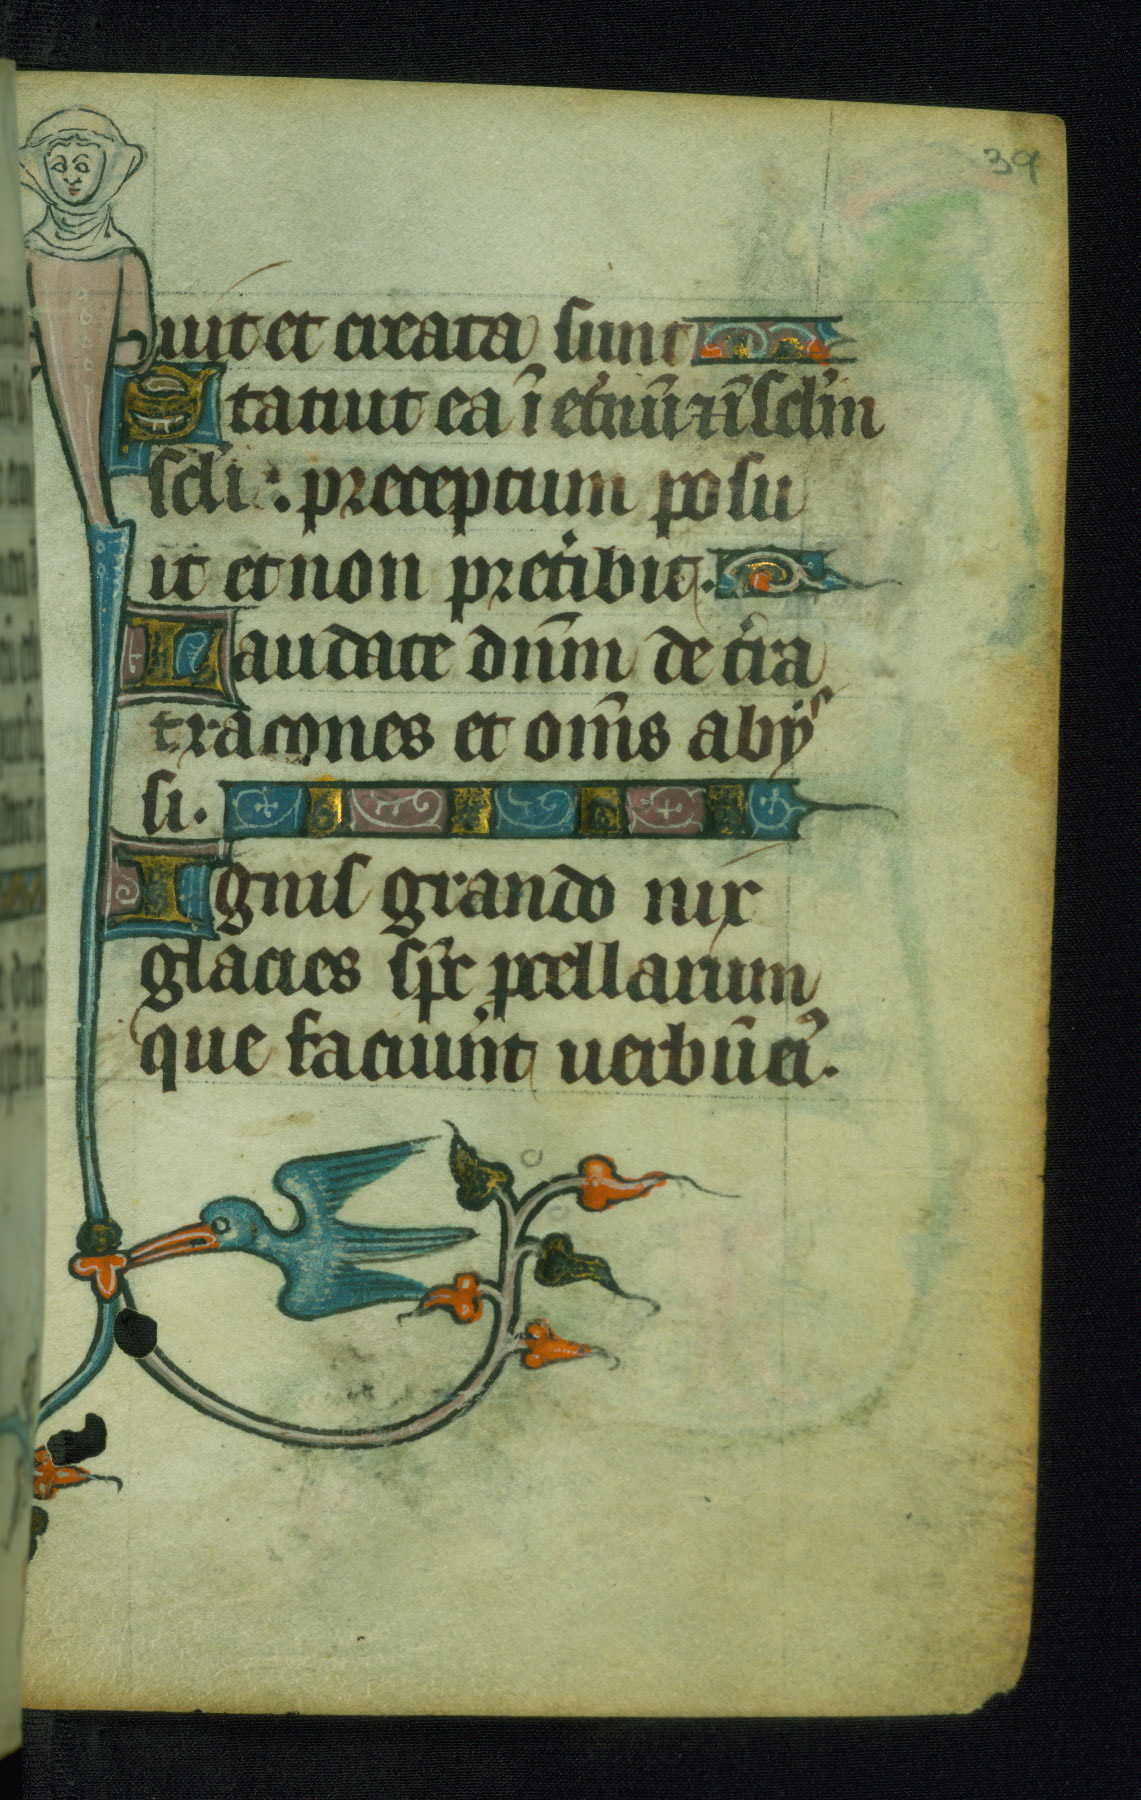 39
uit et creata sunt
Statuit ea ī et̉nū ⁊ ī sclm̄
scli : preceptum posu
it et non pret̉ibit.
Laudate dnm̄ de t̉ra
tracones et om̄s abyſ
si.
Ignis grando nix
glacies sp̄c pcellarum
que faciunt uerbū ei᾽.